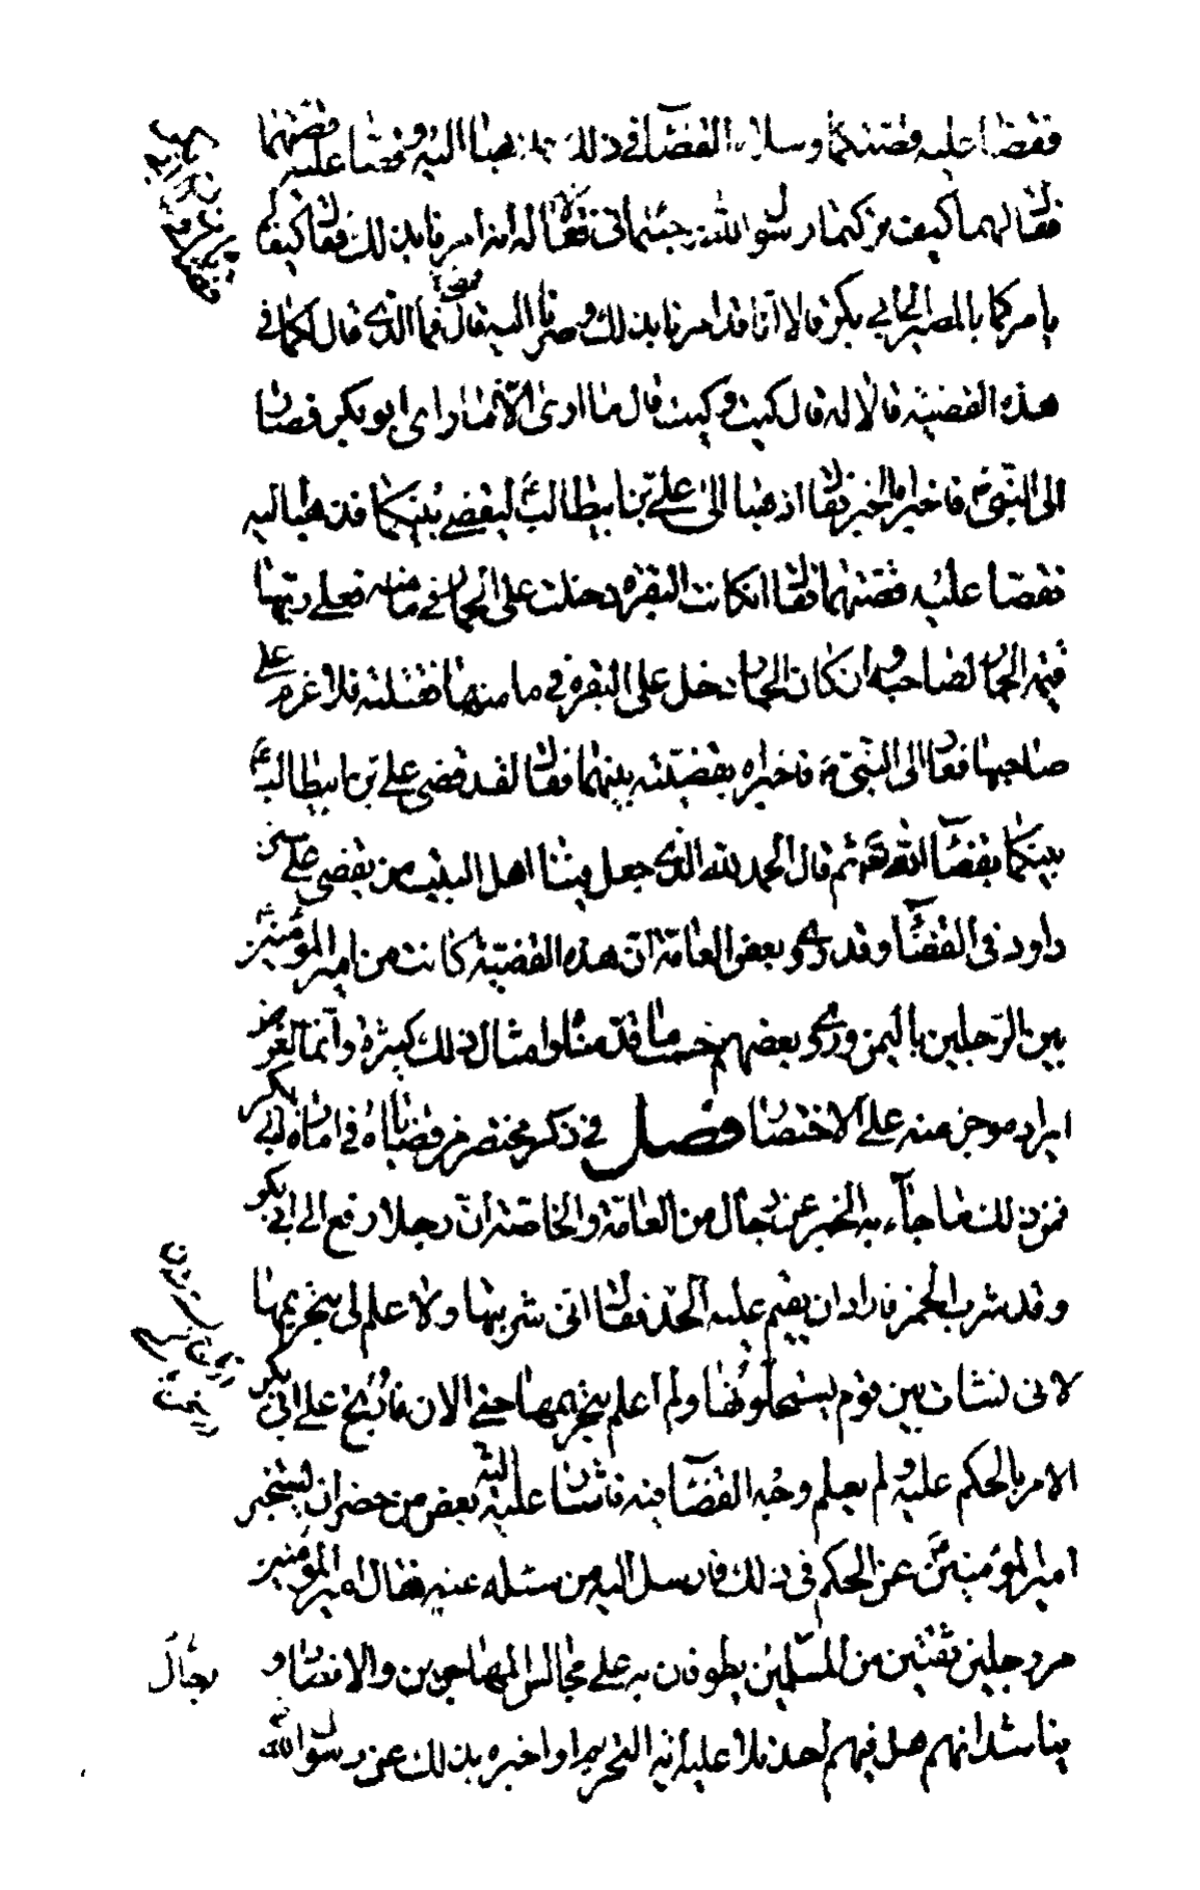 فقصا عليه قصتكما وسلاه القضاء في ذلك فذهبا اليه وقصا عليه قصتهما
فقال لهما كيف تركتما رسول الله وجئتماني فقالا له انه امرنا بذلك فقال كيف لم
يامركما بالمصير الى ابي بكر قالا انا قد امرنا بذلك وصرنا اليه قال فما الذي قال لكما في
هذه القضية قالا له قال كيت وكيت قال ما ارى الا كما راى ابو بكر فصارا
الى النبي ص فاخبراه الخبر فقال اذهبا الى علي بن ابيطالب ع ليقضي بينكما فذهبا اليه
فقصا عليه قصتهما فقال ان كانت البقرة دخلت على الحمار في مامنه فعلى ربها
قيمة الحمار لصاحبه وان كان الحمار دخل على البقرة في مامنها فقتلته فلا غرم على
صاحبها فعادا الى النبي ص فاخبراه بقضيته بينهما فقال لقد قضى علي بن ابيطالب ع
بينكما بقضاء الله تع ثم قال الحمد لله الذي جعل فينا اهل البيت من يقضي على سنن
داود في القضاء وقد روى بعض العامة ان هذه القضية كانت من امير المؤمنين ع
بين الرجلين باليمن وروى بعضهم حسب ما قدمناه وامثال ذلك كثيرة وانما الغرض
ايراد موجز منه على الاختصار فصل في ذكر مختصر من قضاياه في امارة ابي بكر
فمن ذلك ما جاء به الخبر عن رجال من العامة والخاصة ان رجلا رفع الى ابي بكر
وقد شرب الخمر فاراد ان يقيم عليه الحد فقال انني شربتها ولا علم لي بتحريمها
لاني نشات بين قوم يستحلونها ولم اعلم بتحريمها حتى الان فارتج على ابي بكر
الامر بالحكم عليه ولم يعلم وجه القضاء فيه فاشار عليه بعض من حضر ان يستخبر
امير المؤمنين ع عن الحكم في ذلك فارسل اليه من سئله عنه فقال امير المؤمنين
مر رجلين ثقتين من المسلمين يطوفان به على مجالس المهاجرين والانصار و
يناشدانهم هل فيهم احد تلا عليه اية التحريم او اخبره بذلك عن رسول الله